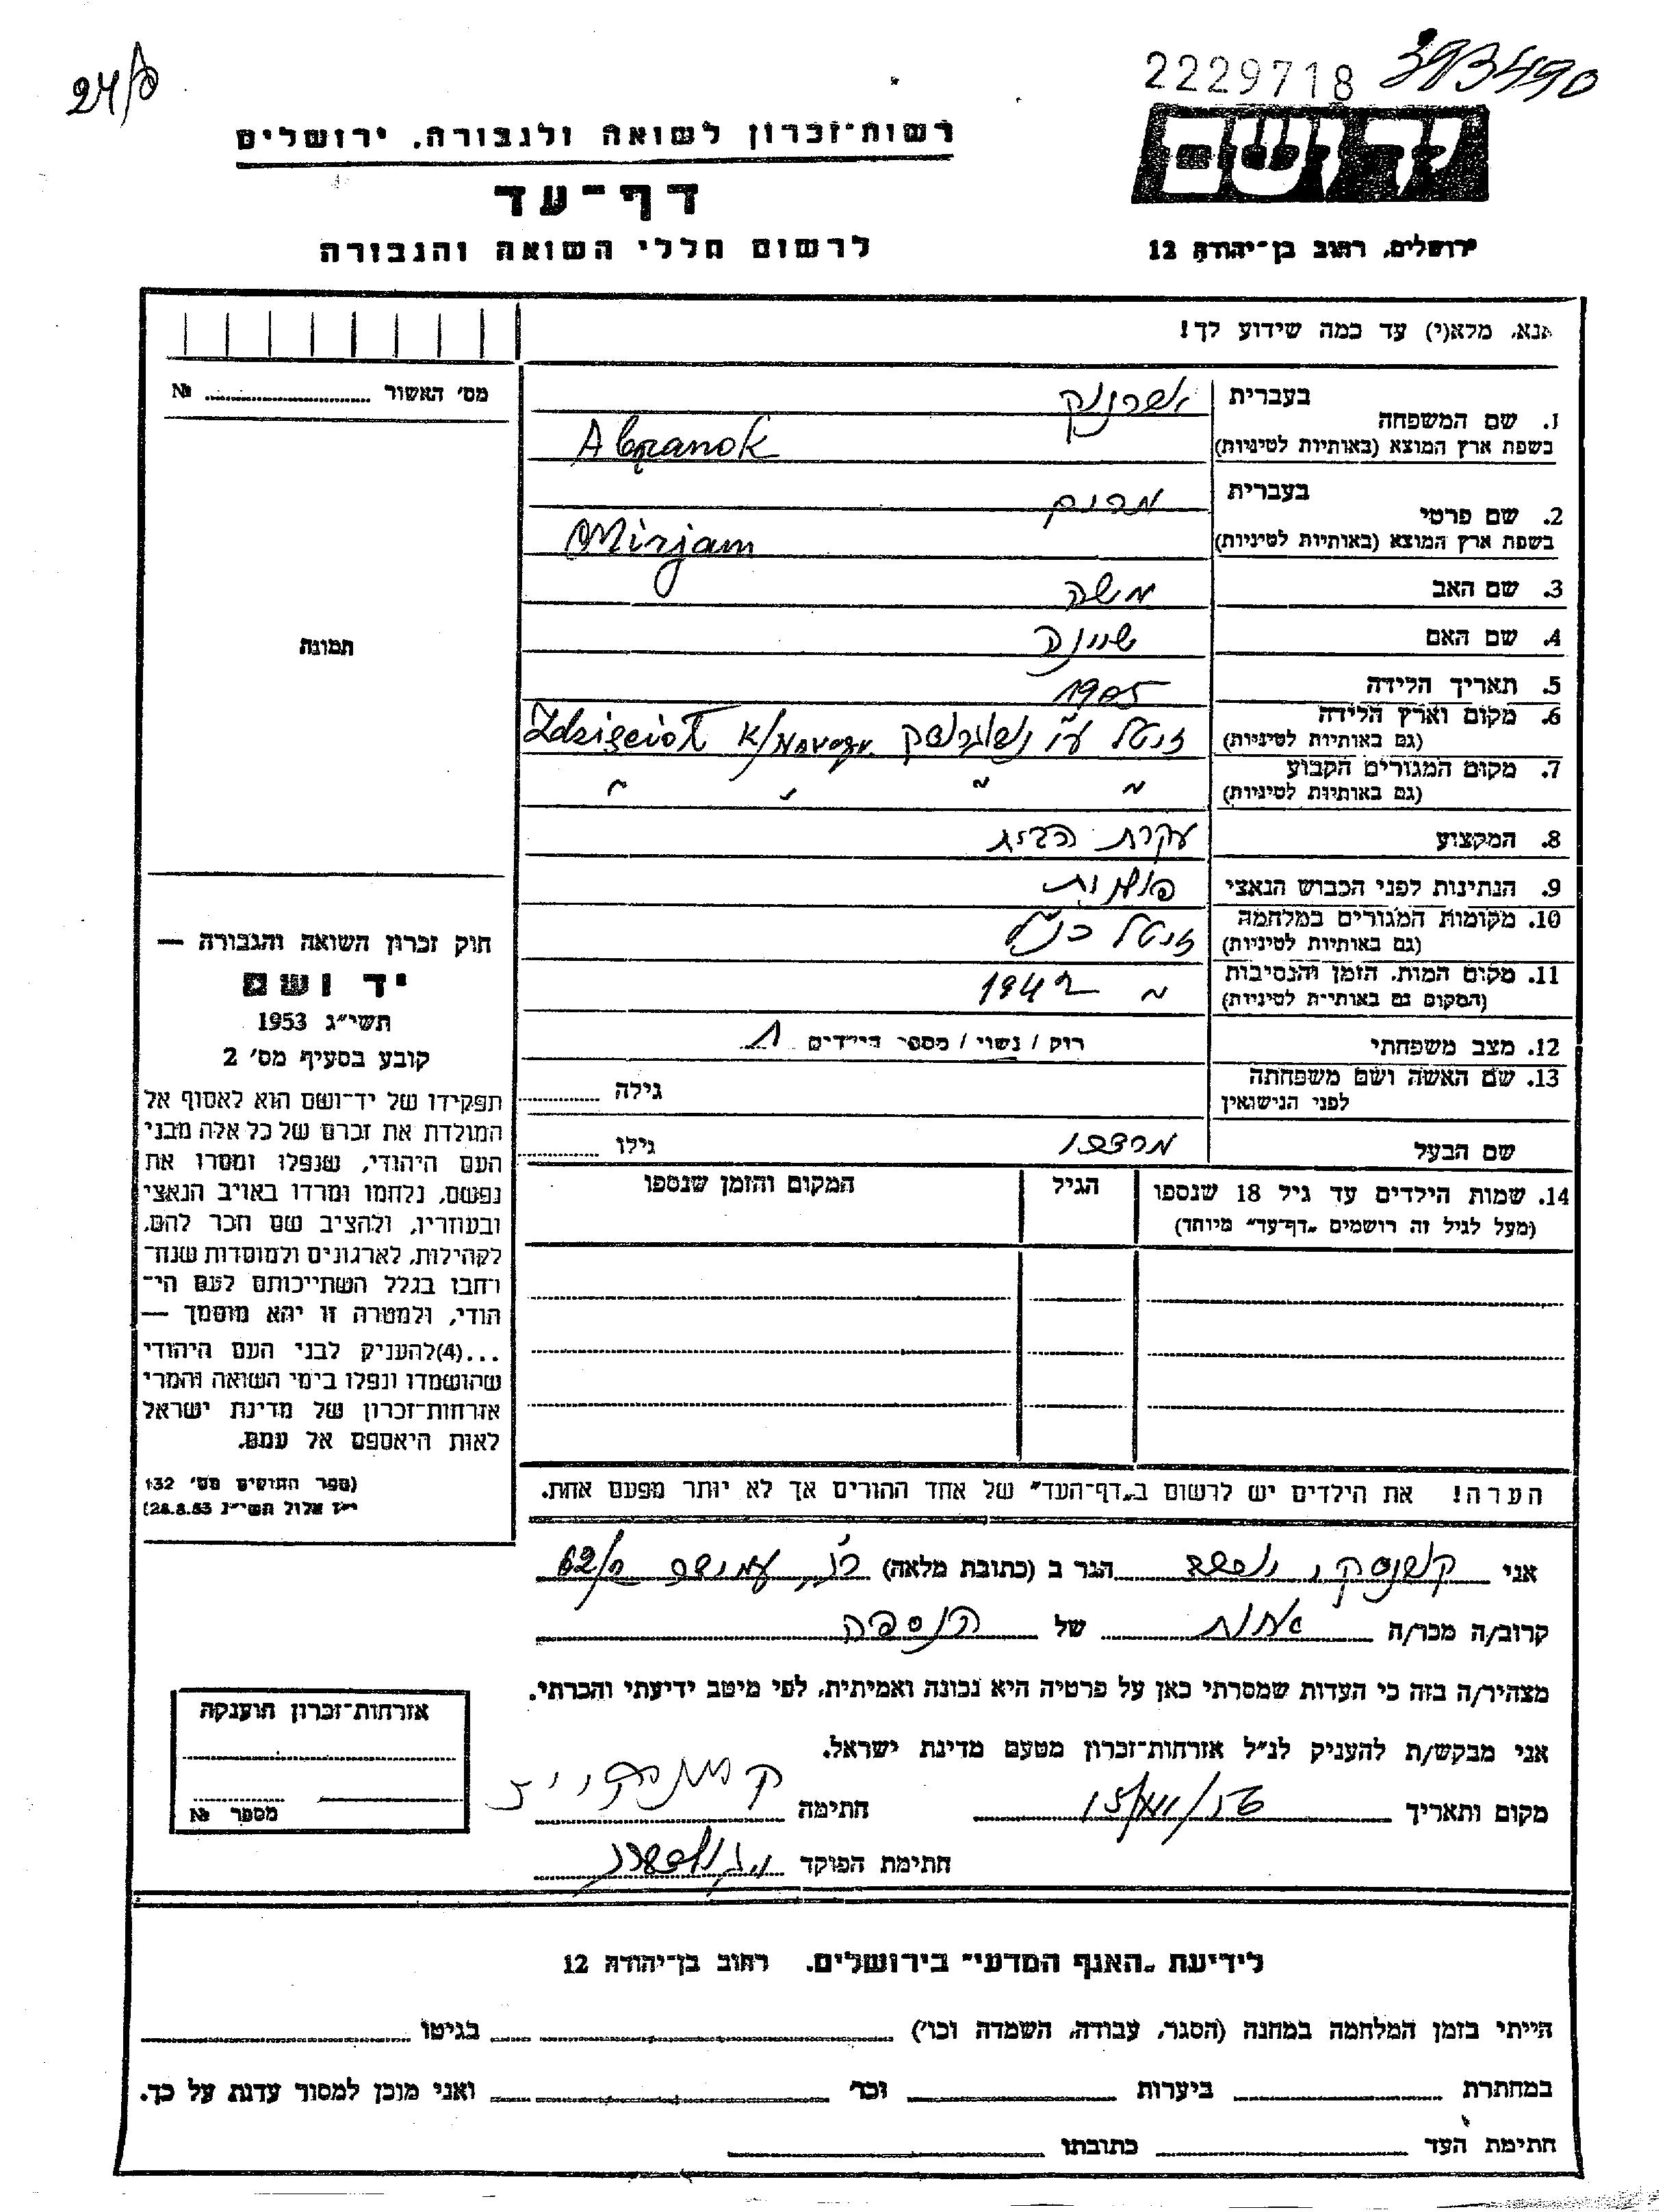 24/
2229718 393490
רשות־זכרון לשואה ולגבורה, ירושלים
יד ושם
דף־עד
לרשום חללי השואה והגבורה
ירושלים, רחוב בן־יהודה 12
אנא, מלא(י) עד כמה שידוע לך!
מס' האשור № 
בעברית
1. שם המשפחה
בשפת ארץ המוצא (באותיות לטיניות) Abranok
בעברית מרים
2. שם פרטי
בשפת ארץ המוצא (באותיות לטיניות) Mirjam
3. שם האב משה
4. שם האם שיינה
5. תאריך הלידה 1905
6. מקום וארץ הלידה
(גם באותיות לטיניות) זיטל ע"י Zdzięcioł k/Nowogr.
7. מקום המגורים הקבוע
(גם באותיות לטיניות) " " " "
8. המקצוע עקרת הבית
9. הנתינות לפני הכבוש הנאצי פולנית
10. מקומות המגורים במלחמה
(גם באותיות לטיניות) זיטל כנ"ל
11. מקום המות, הזמן והנסיבות
(המקום גם באותיות לטיניות) " 1942
12. מצב משפחתי רוק / נשוי / מספר הילדים 1
13. שם האשה ושם משפחתה
לפני הנישואין גילה
שם הבעל מרדכי גילו
14. שמות הילדים עד גיל 18 שנספו הגיל המקום והזמן שנספו
(מעל לגיל זה רושמים „דף־עד" מיוחד)
הערה! את הילדים יש לרשום ב„דף־העד" של אחד ההורים אך לא יותר מפעם אחת.
תמונה
חוק זכרון השואה והגבורה —
יד ושם
תשי״ג 1953
קובע בסעיף מס' 2
תפקידו של יד־ושם הוא לאסוף אל
המולדת את זכרם של כל אלה מבני
העם היהודי, שנפלו ומסרו את
נפשם, נלחמו ומרדו באויב הנאצי
ובעוזריו, ולהציב שם וזכר להם,
לקהילות, לארגונים ולמוסדות שנח־
רחבו בגלל השתייכותם לעם הי־
הודי, ולמטרה זו יהא מוסמך —
...(4)להעניק לבני העם היהודי
שהושמדו ונפלו בימי השואה והמרי
אזרחות־זכרון של מדינת ישראל
לאות היאספם אל עמם.
(ספר החוקים מס' 132
י״ז אלול תשי״ג 28.8.53)
אני הגר ב (כתובת מלאה) 62/
קרוב/ה מכר/ה אחות של הנספה
מצהיר/ה בזה כי העדות שמסרתי כאן על פרטיה היא נכונה ואמיתית, לפי מיטב ידיעתי והכרתי.
אני מבקש/ת להעניק לנ״ל אזרחות־זכרון מטעם מדינת ישראל.
מקום ותאריך חתימה
חתימת הפוקד
אזרחות־זכרון הוענקה
מספר №
לידיעת „האגף המדעי" בירושלים, רחוב בן־יהודה 12
הייתי בזמן המלחמה במחנה (הסגר, עבודה, השמדה וכו') בגיטו
במחתרת ביערות וכו' ואני מוכן למסור עדות על כך.
חתימת העד כתובתו